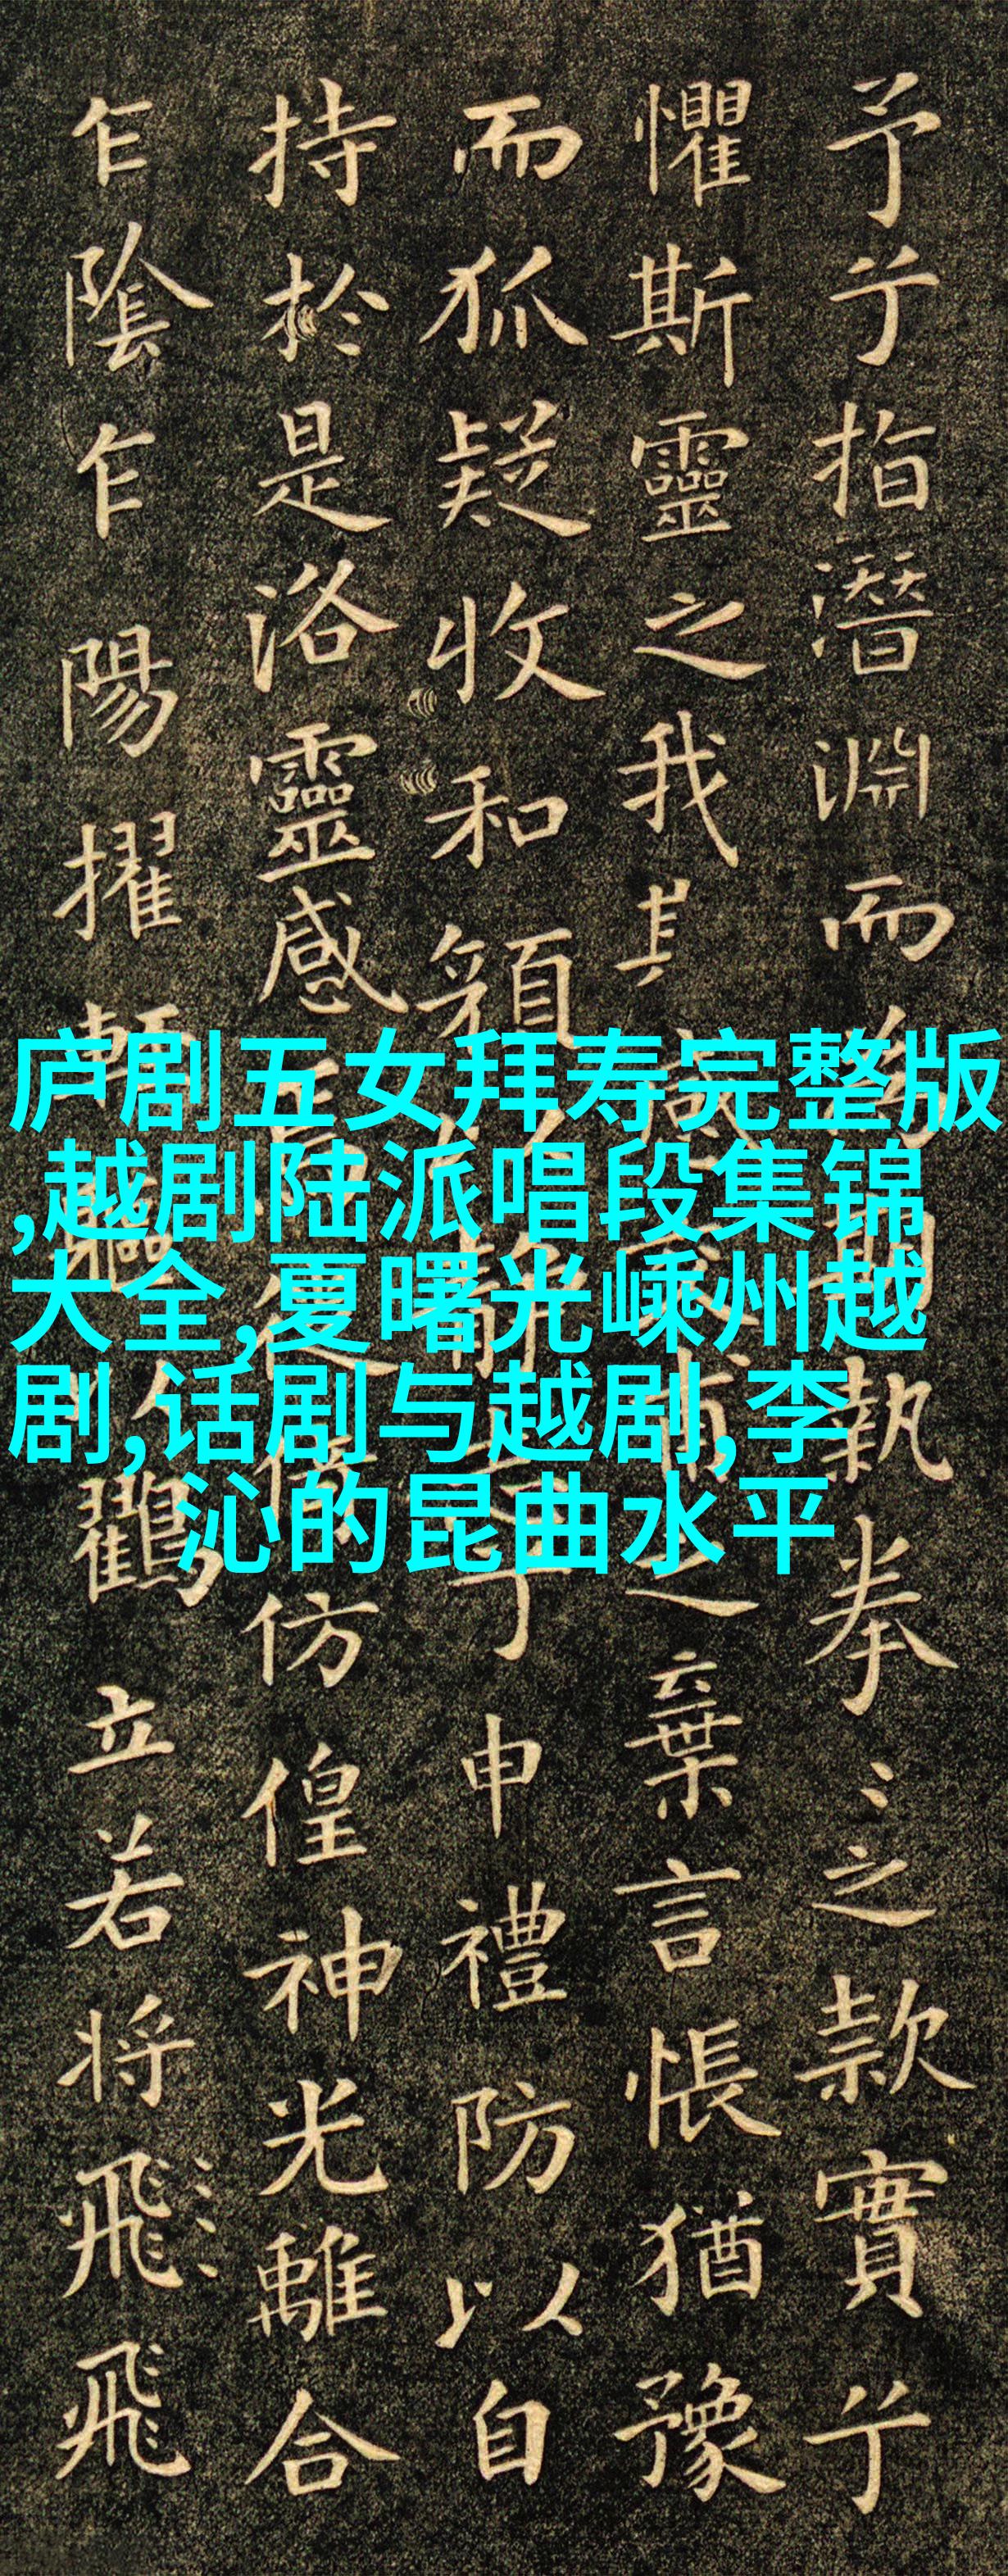 予兮指潛淵而期執拳〻之款實兮
懼斯靈之我其感之棄言悵猶豫
而狐疑收和顏以靜予申禮防以自
持於是洛靈感仿偟神光離合
乍陰乍陽擢輕軀鶴立若將飛飛
庐剧五女拜寿完整版
,越剧陆派唱段集锦
大全,夏曙光嵊州越
剧,话剧与越剧,李
沁的昆曲水平